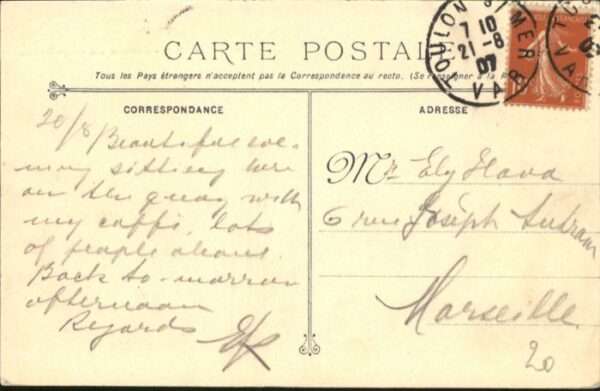 CARTE POSTALE
Tous les Pays étrangers n'acceptent pas la Correspondance au recto. (Se renseigner à la
CORRESPONDANCE
20/8/Beautiful eve-
ning sitting here
on the quay with
my caffè, lots
of people about.
Back to-morrow
afternoon
Regards
ADRESSE
Mr Ely
6 rue Joseph Autran
Marseille
20
TOULON S/MER
7 10
21-8
07
VAR